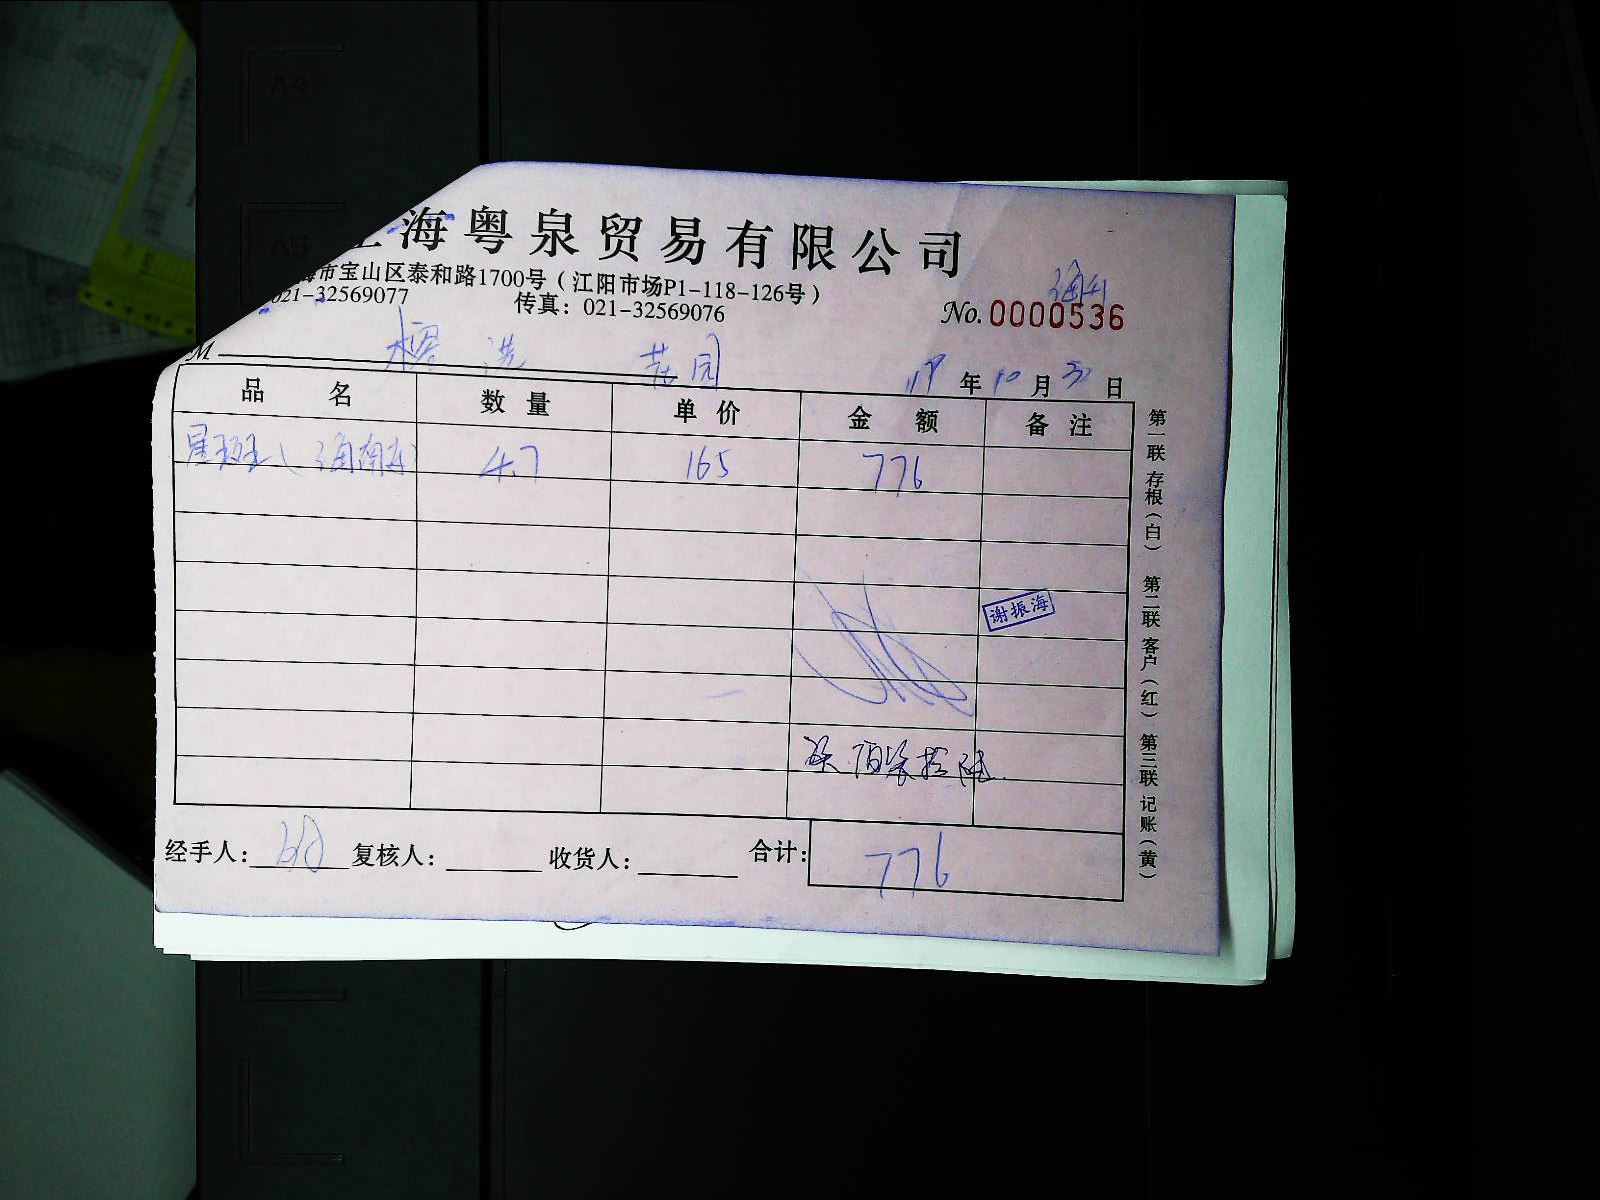 上海粤泉贸易有限公司
海市宝山区泰和路1700号（江阳市场P1-118-126号）
021-32569077 传真：021-32569076
No. 0000536
M 花园
19 年 10 月 31 日
品 名 数 量 单 价 金 额 备 注
星斑（海南 4.7 165 776
谢振海
柒佰柒拾陆
经手人： 复核人： 收货人： 合计： 776
第一联 存根（白） 第二联 客户（红） 第三联 记账（黄）
A4
A5